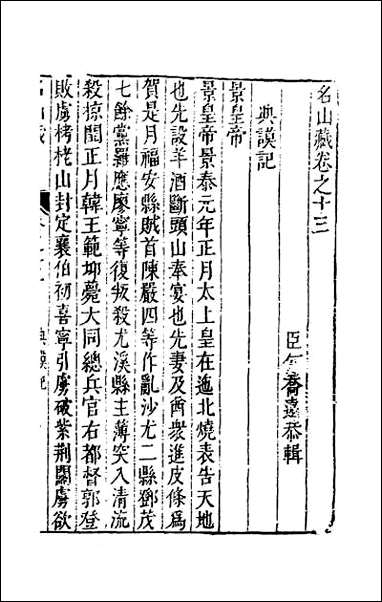 名山藏卷之十三
臣何喬遠恭輯
典謨記
景皇帝
景皇帝景泰元年正月太上皇在迤北燒表告天地
也先設羊酒斷頭山奉宴也先妻及酋衆進皮條為
賀是月福安縣賊首陳嚴四等作亂沙尤二縣鄧茂
七餘黨羅應廖寧等復叛殺尤溪縣主薄突入清流
殺掠閏正月韓王範㘰薨大同總兵官右都督郭登
敗虜栲栳山封定襄伯初喜寧引虜破紫荆關虜欲
名山藏
典謨記